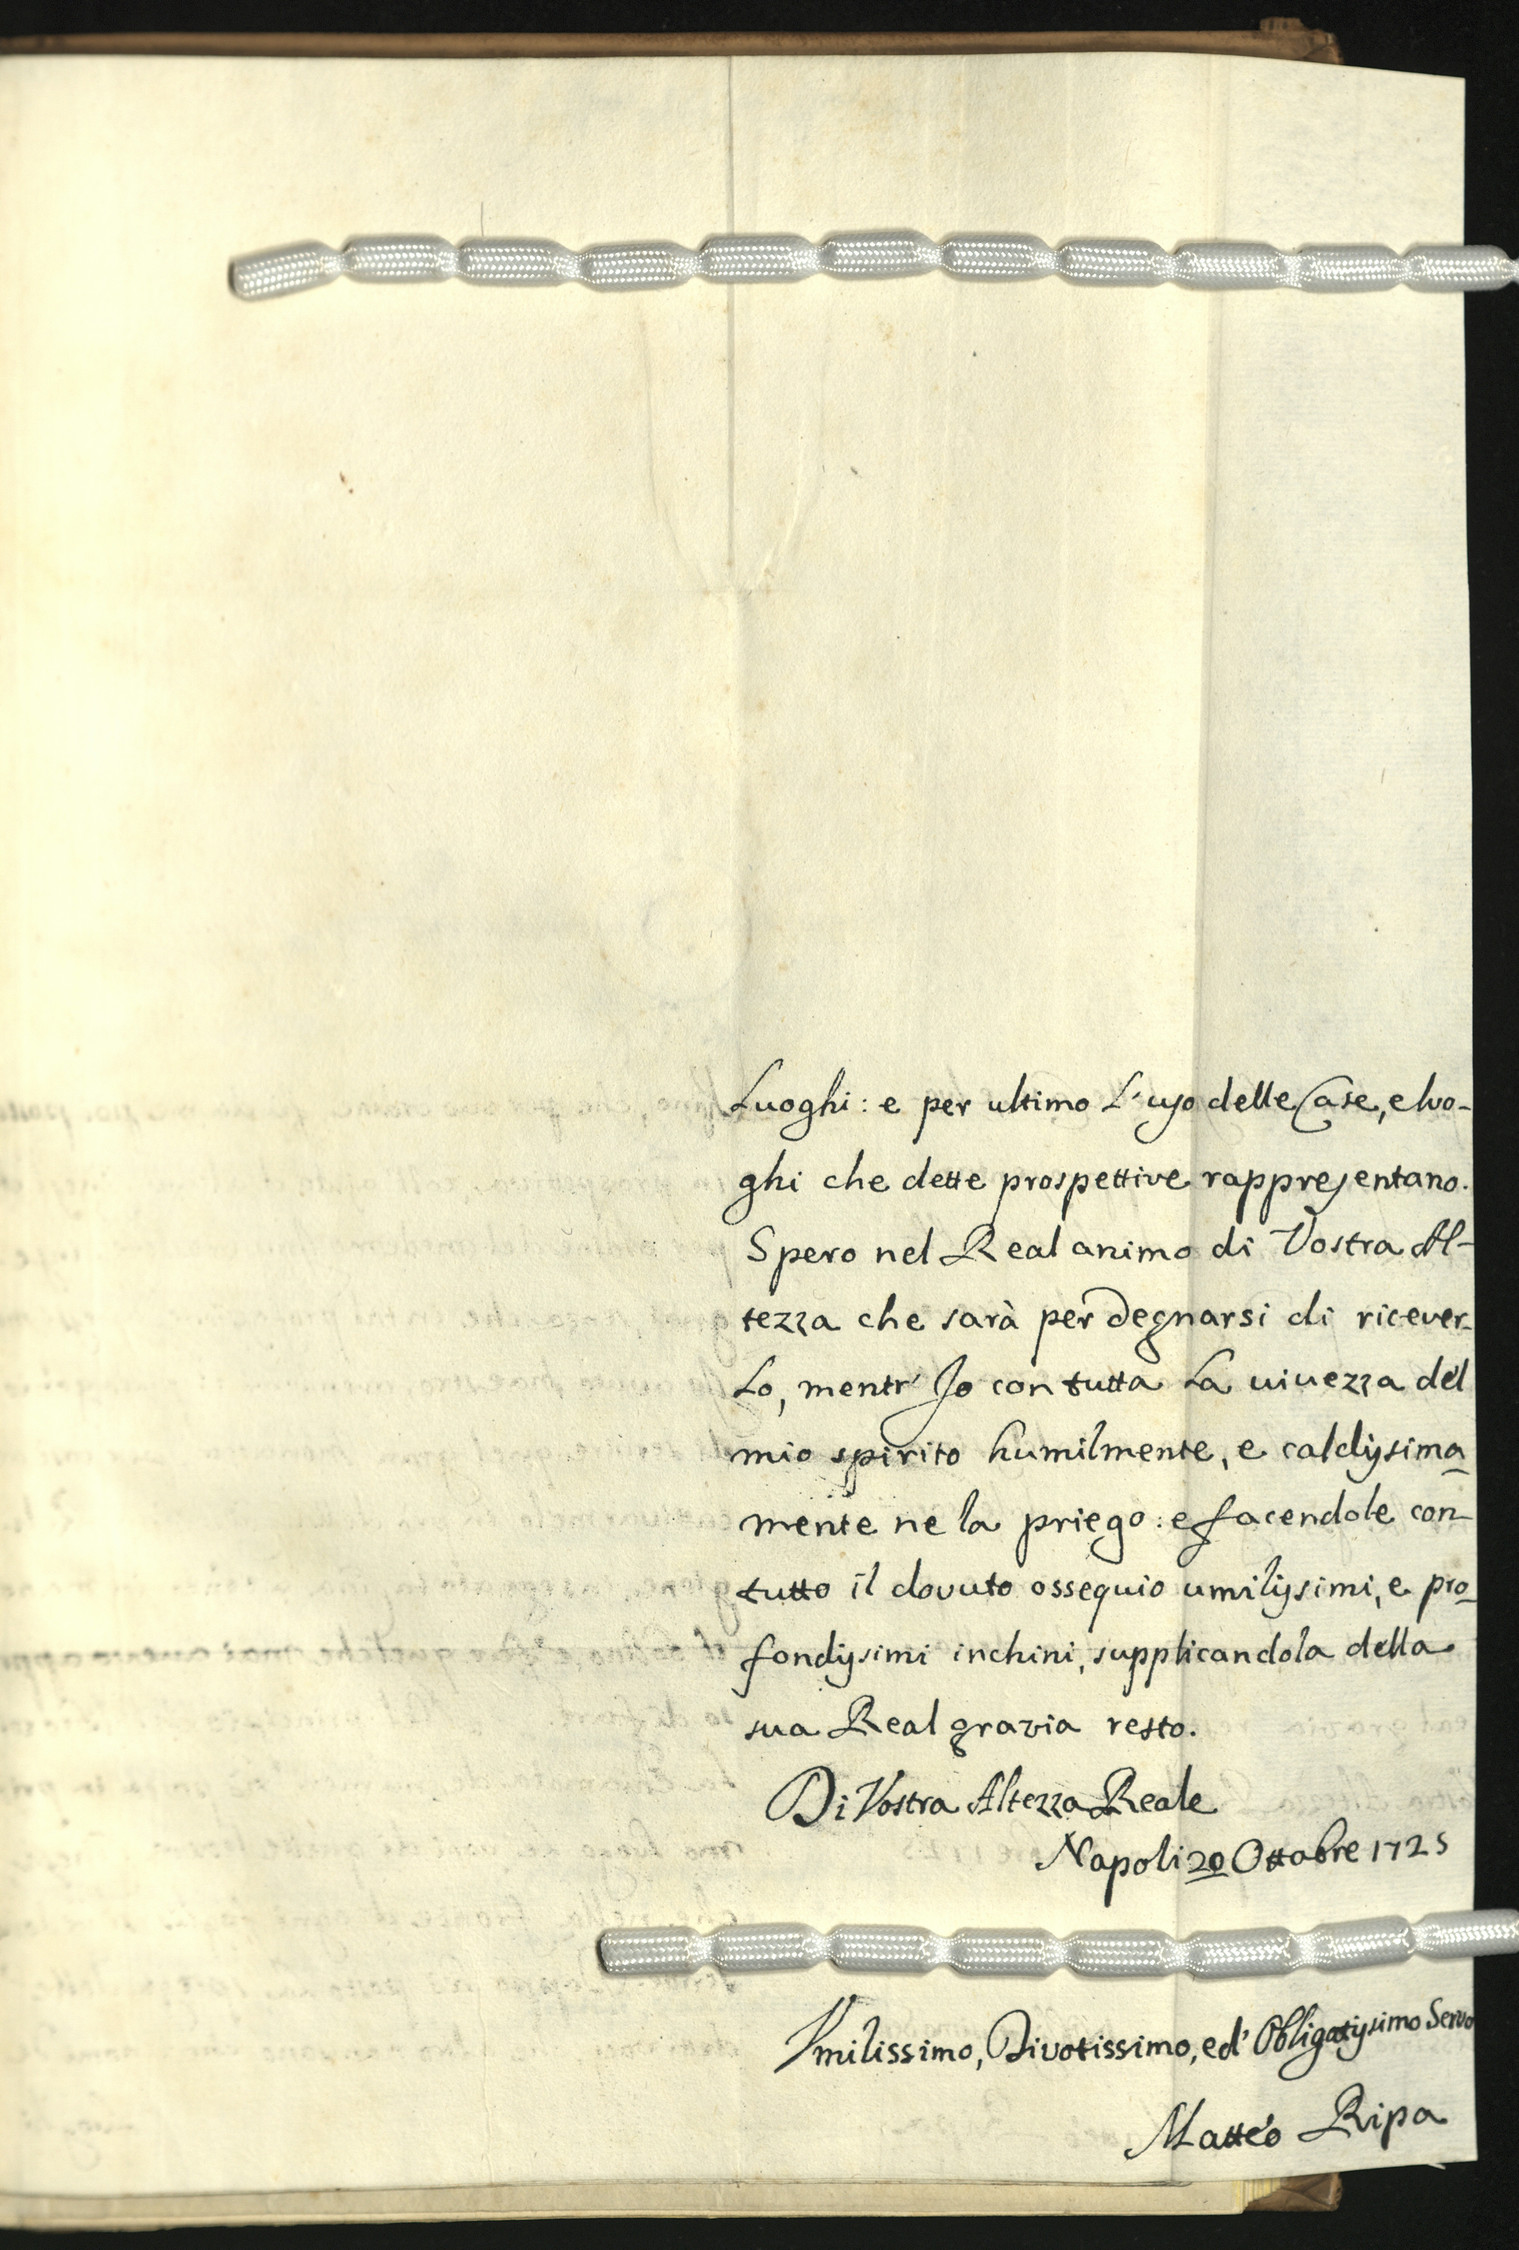 Luoghi: e per ultimo L'uso delle Case, e luo-
ghi che dette prospettive rappresentano.
Spero nel Real animo di Vostra Al-
tezza che sarà per degnarsi di ricever-
Lo, mentr' Jo con tutta La uiuezza del
mio spirito humilmente, e caldissima-
mente ne la priego: e facendole con
tutto il dovuto ossequio umilissimi, e pro-
fondissimi inchini, supplicandola della
sua Real grazia resto.
Di Vostra Altezza Reale
Napoli 20 Ottobre 1725
Vmilissimo, Divotissimo, ed' Obligatissimo Servo
Matteo Ripa